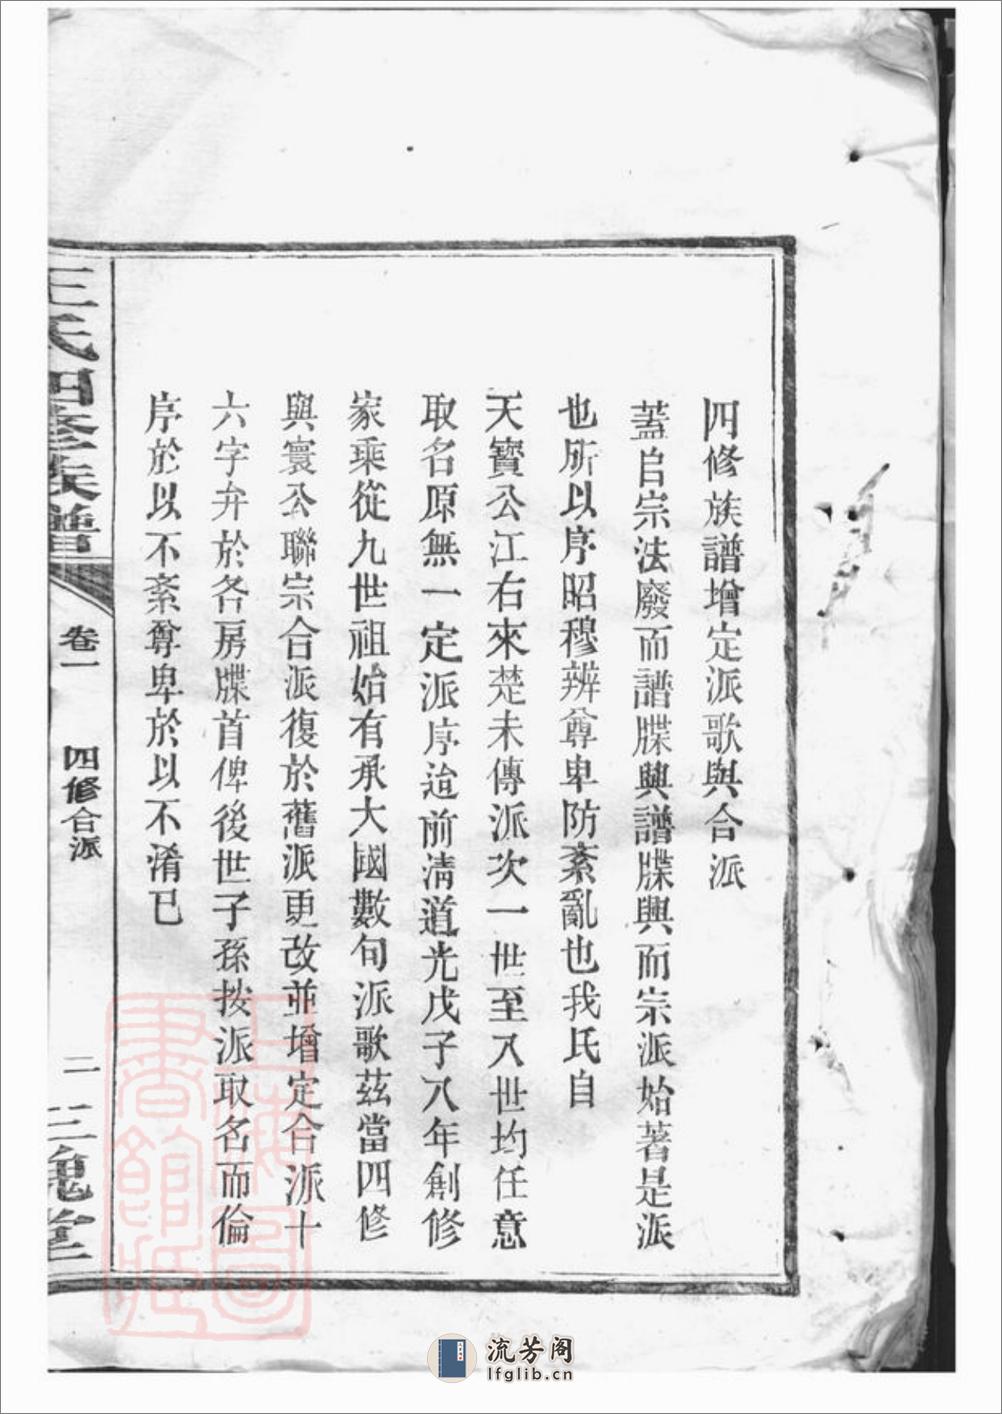 四修族譜增定派歌與合派
蓋自宗法廢而譜牒興譜牒興而宗派始著是派
也所以序昭穆辨尊卑防紊亂也我氏自
天寶公江右來楚未傳派次一世至八世均任意
取名原無一定派序迨前清道光戊子八年創修
家乘從九世祖始有承大國數句派歌茲當四修
與寰公聯宗合派復於舊派更改並增定合派十
六字弁於各房牒首俾後世子孫按派取名而倫
序於以不紊尊卑於以不淆已
王氏四修族譜
卷一
四修合派
二
三槐堂
上海圖書館藏
流芳阁
lfglib.cn